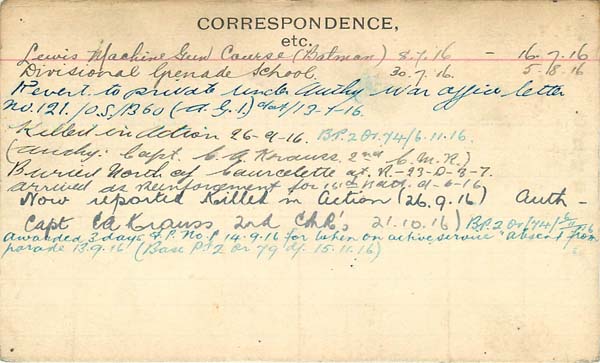 CORRESPONDENCE,
etc.
Lewis Machine Gun Course (Batman) 8.7.16 - 16.7.16
Divisional Grenade School. 30.7.16. 5-8.16
Revert to private under Authy War Office letter
No. 121./O.S./B60 (A.G.1.) dat/13-7-16.
Killed in Action 26-9-16. B.P.2 Or.74/6.11.16.
(Authy: Capt. C. A. Krauss. 2nd C.M.R.)
Buried North of Courcelette at. R-23-D-8-7.
arrived as reinforcement for Batt. 9-6-16)
Now reported Killed in Action (26.9.16) Auth-
Capt CA Krauss 2nd CMR's 21.10.16) B.P.2 Or/74/
Awarded 3 days F.P. No.1 14.9.16 for when on active service "absent from
parade 13.9.16 (Base P.2 Or 79 of 15.11.16)